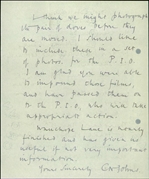 I think we might photograph
the pair of doves before they
are moved. I should like
to include these in a set
of photos for the P.S.O.
I am glad you were able
to impound those films,
and have passed them on
to the P.S.O. who will take
appropriate action.
Wauchope here is nearly
finished and has given us
of not very important
information.
Yours sincerely